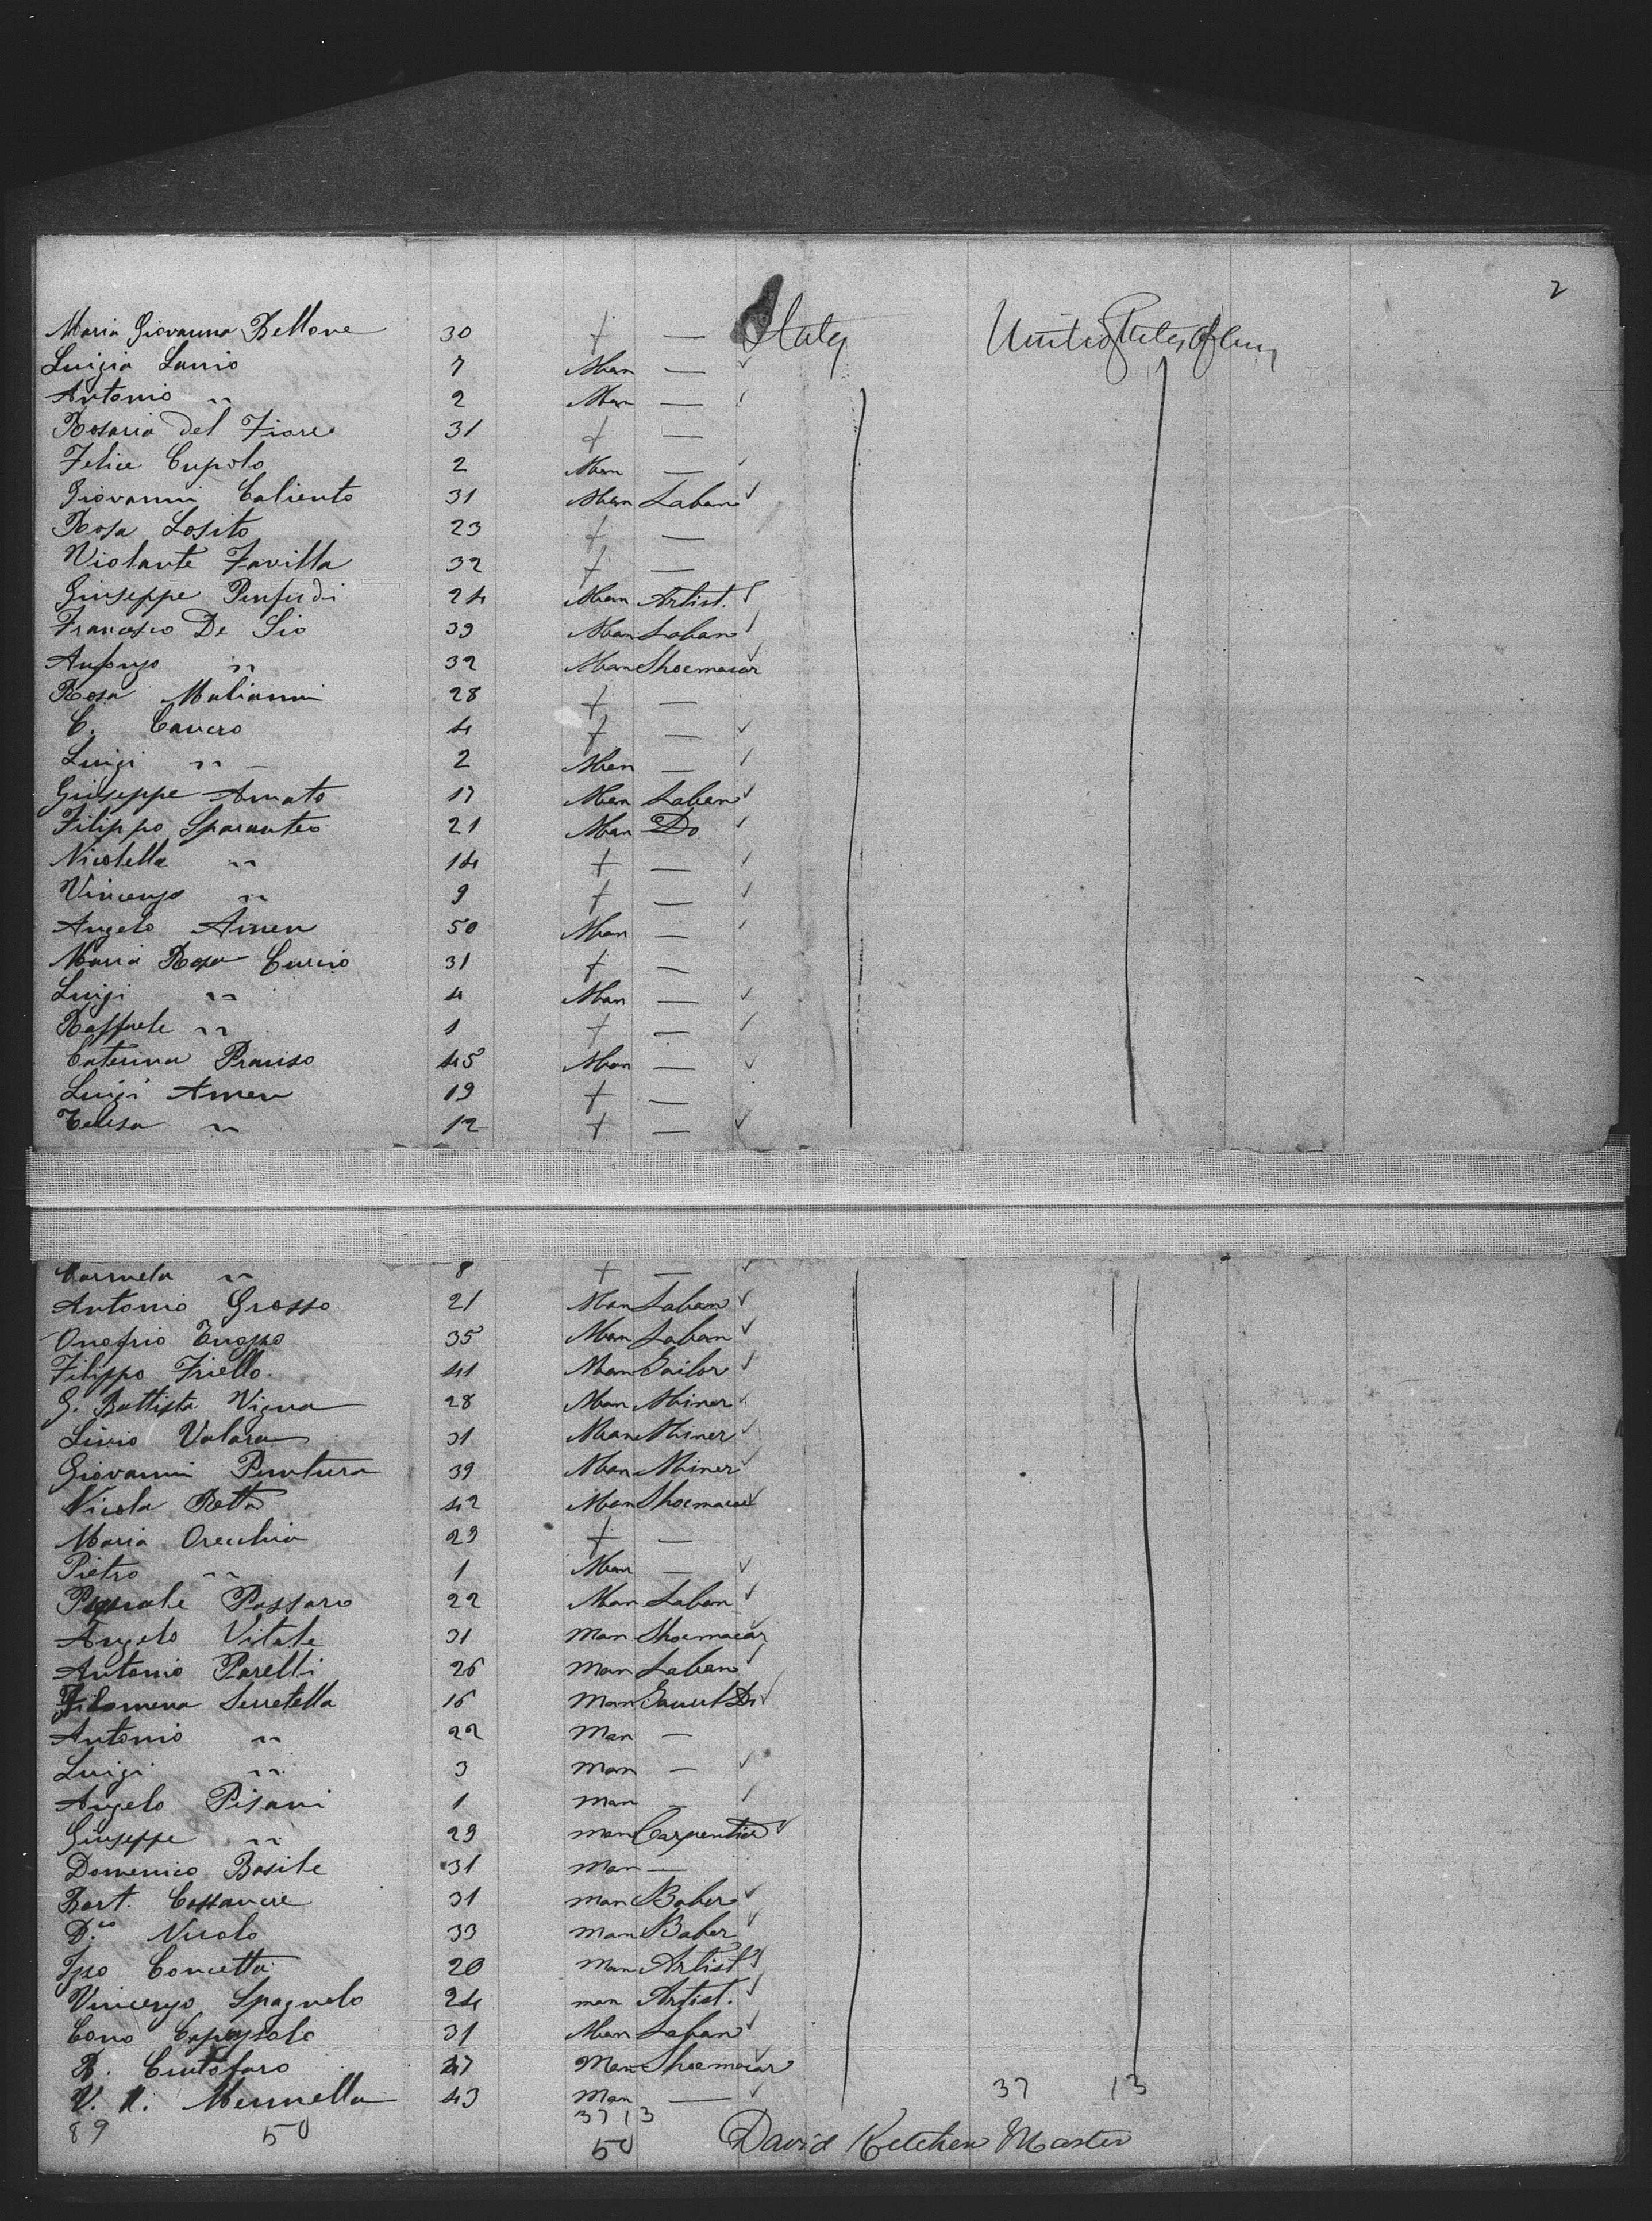 2
Maria Giovanna Bellone 30 + — Italy United States of Am
Luigia Lanio 7 Man — ✓
Antonio " 2 Man —
Rosaria del Fiore 31 + —
Felice Cupolo 2 Man — ✓
Giovanni Caliento 31 Man Laban ✓
Rosa Losito 23 + —
Violante Favilla 32 + —
Giuseppe 24 Man Artist. ✓
Francesco De Sio 39 Man Laban ✓
Anfonzo " 32 Man Shoemacar ✓
Rosa Malianni 28 + —
C. Cavero 4 + — ✓
Luigi " — 2 Man — ✓
Giuseppe Amato 17 Man Laban ✓
Filippo Sparanteo 21 Man Do ✓
Nicolella " 14 + — ✓
Vincenzo " 9 + — ✓
Angelo Amen 50 Man — ✓
Maria Rosa Curcio 31 + —
Luigi " 4 Man — ✓
Raffaele " 1 + — ✓
Caterina 45 Man — ✓
Luigi Amen 19 + —
Telesa " 12 + — ✓
Carmela " 8 + — ✓
Antonio Grosso 21 Man Laban ✓
Onofrio 35 Man Laban ✓
Filippo Friello. 41 Man Tailor ✓
G. Battista Vigna 28 Man Miner ✓
Livio Valara 31 Man Miner ✓
Giovanni Puntura 39 Man Miner ✓
Nicola Rotta 42 Man Shoemacar ✓
Maria Orecchia 29 + —
Pietro " 1 Man — ✓
Pasquale Passaro 22 Man Laban ✓
Angelo Vitale 31 man Shoemacar ✓
Antonio Parelli 26 man Laban ✓
Filomena Serretella 16 man ✓
Antonio " 22 man —
Luigi " 3 man — ✓
Angelo Pisani 1 man — ✓
Giuseppe " 29 man Carpentier ✓
Domenico Basile 31 man —
Bart. 31 man Baber ✓
D.co Nicolo 33 man Baber ✓
Concetta 20 man Artist ✓
Vincenzo Spagnolo 24 man Artist. ✓
Cono 31 Man Laban ✓
R. Cintofaro 47 Man Shoemacar ✓
V. N. Mennella 43 Man — ✓ 37 13
89 50 37 13
50 David Ketchen Master